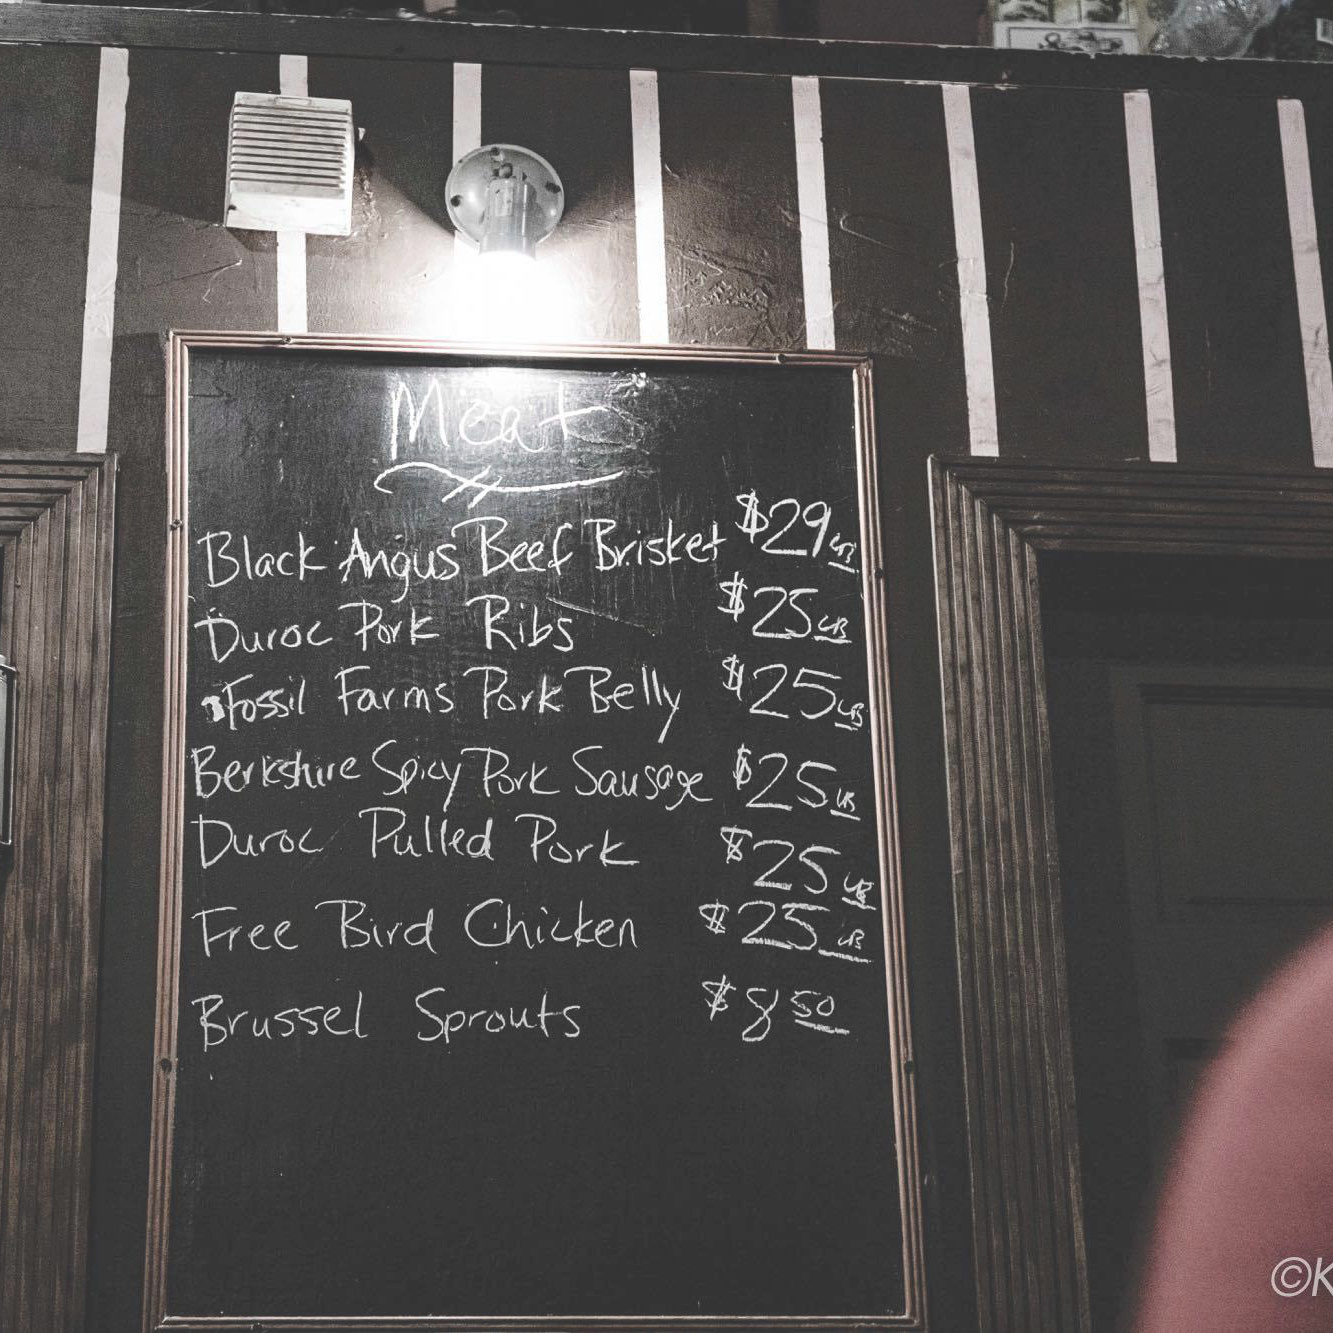 Meat
Black Angus Beef Brisket $29 LB
Duroc Pork Ribs $25 LB
Fossil Farms Pork Belly $25 LB
Berkshire Spicy Pork Sausage $25 LB
Duroc Pulled Pork $25 LB
Free Bird Chicken $25 LB
Brussel Sprouts $8 50
©K